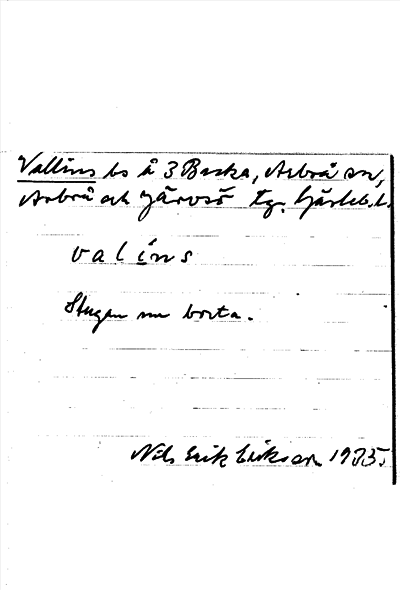 Vallins bs å 3 Backa, Arbrå sn,
Arbrå och Järvsö tg. Gävleb. l.
valins
Stugan nu borta.
Nils Erik Eriksson 1935.